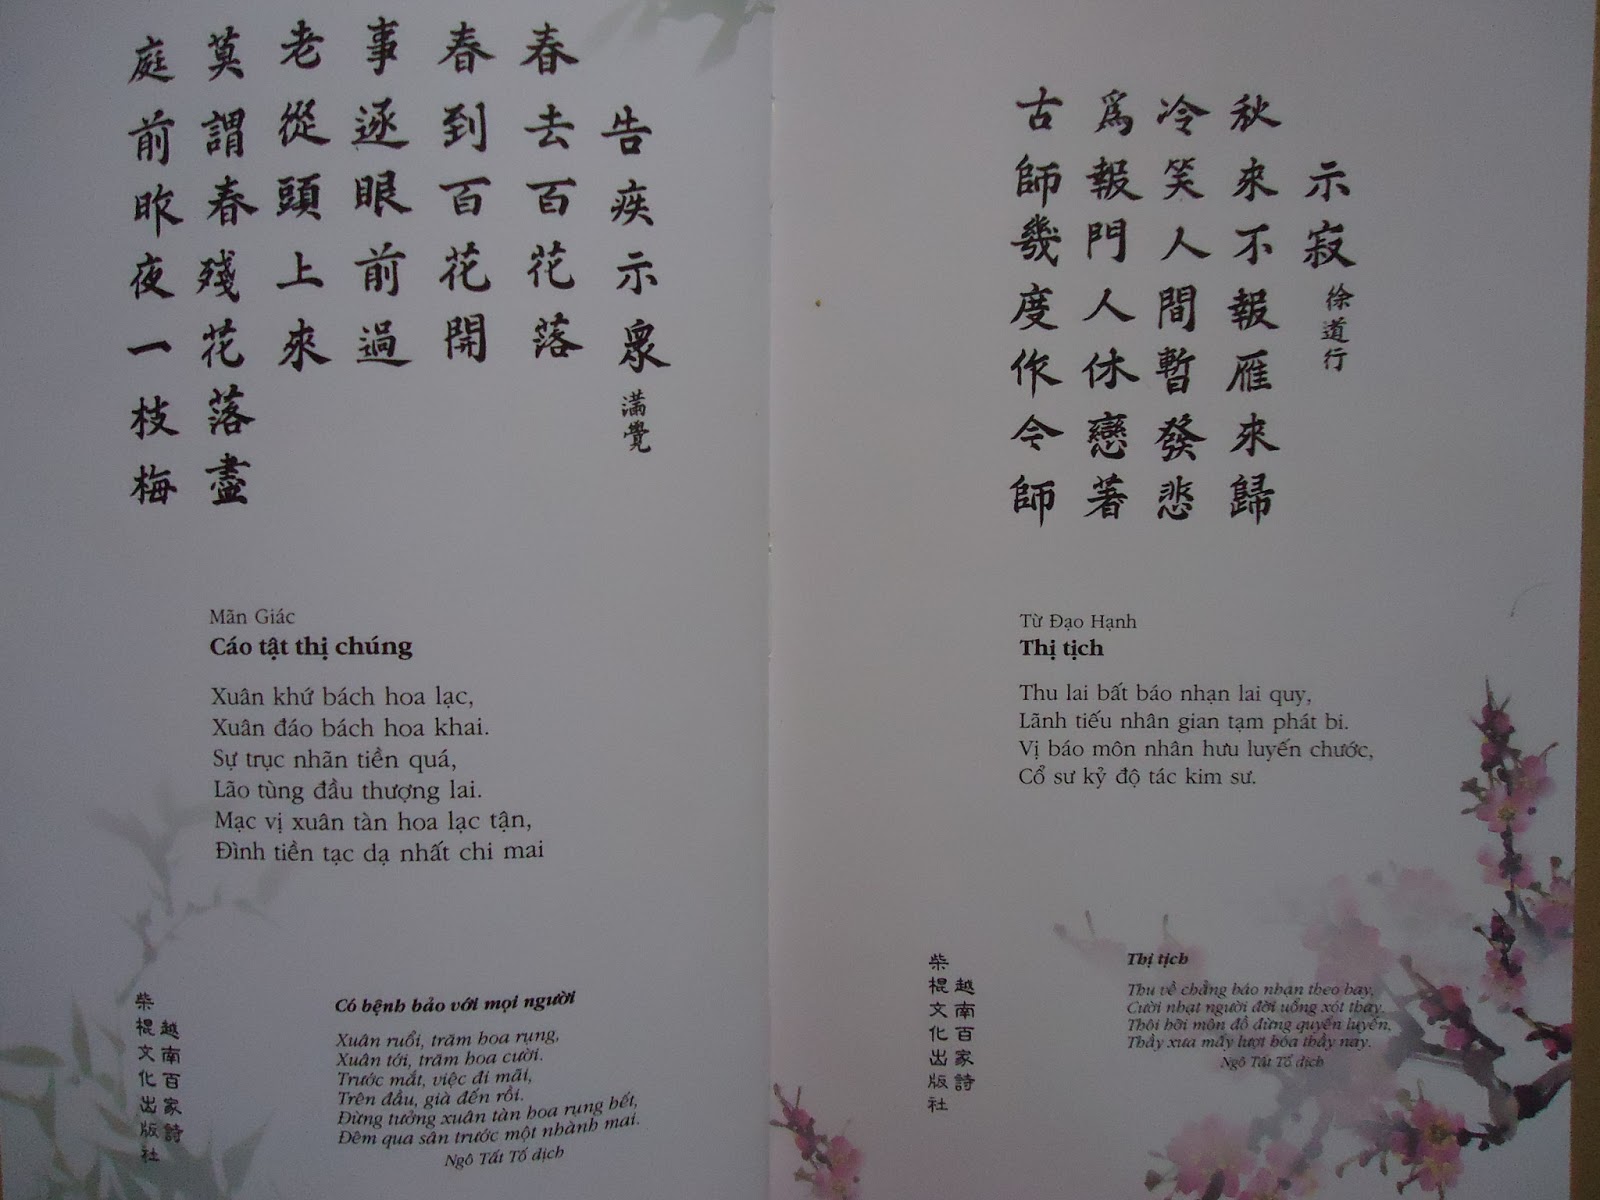 告疾示衆
滿覺
春去百花落
春到百花開
事逐眼前過
老從頭上來
莫謂春殘花落盡
庭前昨夜一枝梅
Mãn Giác
Cáo tật thị chúng
Xuân khứ bách hoa lạc,
Xuân đáo bách hoa khai.
Sự trục nhãn tiền quá,
Lão tùng đầu thượng lai.
Mạc vị xuân tàn hoa lạc tận,
Đình tiền tạc dạ nhất chi mai
越南百家詩
柴棍文化出版社
Có bệnh bảo với mọi người
Xuân ruổi, trăm hoa rụng,
Xuân tới, trăm hoa cười.
Trước mắt, việc đi mãi,
Trên đầu, già đến rồi.
Đừng tưởng xuân tàn hoa rụng hết,
Đêm qua sân trước một nhành mai.
Ngô Tất Tố dịch
示寂
徐道行
秋來不報雁來歸
冷笑人間暫發悲
爲報門人休戀著
古師幾度作今師
Từ Đạo Hạnh
Thị tịch
Thu lai bất báo nhạn lai quy,
Lãnh tiếu nhân gian tạm phát bi.
Vị báo môn nhân hưu luyến chước,
Cổ sư kỷ độ tác kim sư.
越南百家詩
柴棍文化出版社
Thị tịch
Thu về chẳng báo nhạn theo bay,
Cười nhạt người đời uổng xót thay.
Thôi hỡi môn đồ đừng quyến luyến,
Thầy xưa mấy lượt hóa thầy nay.
Ngô Tất Tố dịch